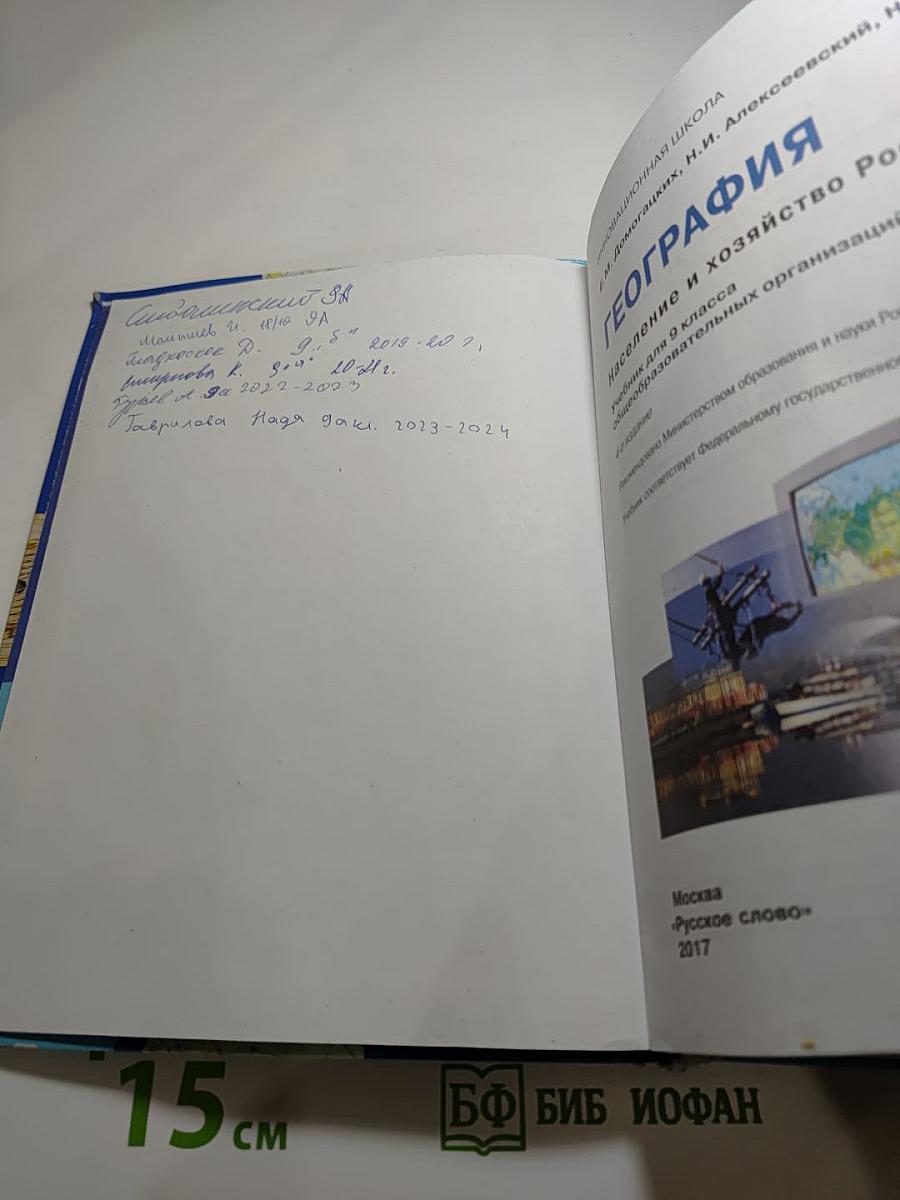 9А
И. 18/19 9А
Д. 9 „б" 2019-20 г.
Смирнова К. 20-21 г.
А. 9а 2022-2023
Гаврилова Надя 9а кл. 2023-2024
ИННОВАЦИОННАЯ ШКОЛА
Е.М. Домогацких, Н.И. Алексеевский, Н
ГЕОГРАФИЯ
Население и хозяйство Рос
Учебник для 9 класса
общеобразовательных организаций
4-е издание
Рекомендовано Министерством образования и науки Рос
Учебник соответствует Федеральному государственном
Москва
«Русское слово»
2017
15 см
БФ БИБ ИОФАН